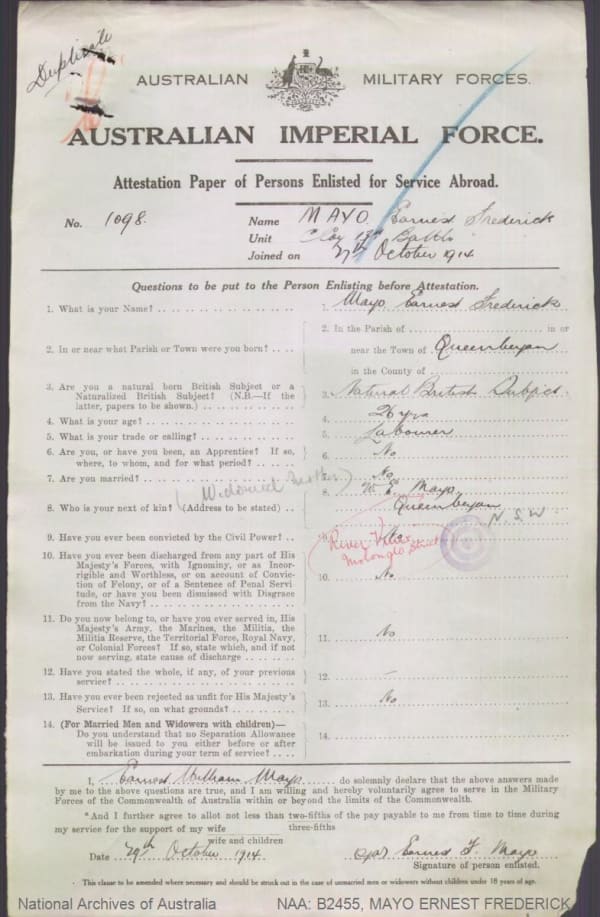 Duplicate
AUSTRALIAN MILITARY FORCES.
AUSTRALIAN IMPERIAL FORCE.
Attestation Paper of Persons Enlisted for Service Abroad.
No. 1098. Name MAYO Earnest Frederick
Unit C Coy 13th Battn
Joined on October 1914
Questions to be put to the Person Enlisting before Attestation.
1. What is your Name? 1. Mayo Earnest Frederick
2. In or near what Parish or Town were you born? 2. In the Parish of in or
near the Town of Queenbeyan
in the County of
3. Are you a natural born British Subject or a
Naturalized British Subject? (N.B.—If the
latter, papers to be shown.) 3. Natural British Subject
4. What is your age? 4. 26 yrs
5. What is your trade or calling? 5. Labourer
6. Are you, or have you been, an Apprentice? If so,
where, to whom, and for what period? 6. No
7. Are you married? 7. No
(Widowed Mother)
8. Who is your next of kin? (Address to be stated) 8. E. Mayo
Queenbeyan
N.S.W
9. Have you ever been convicted by the Civil Power? 9. No
River View
Molonglo Street
10. Have you ever been discharged from any part of His
Majesty's Forces, with Ignominy, or as Incor-
rigible and Worthless, or on account of Convic-
tion of Felony, or of a Sentence of Penal Servi-
tude, or have you been Dismissed with Disgrace
from the Navy? 10. No
11. Do you now belong to, or have you ever served in, His
Majesty's Army, the Marines, the Militia, the
Militia Reserve, the Territorial Force, Royal Navy,
or Colonial Forces? If so, state which, and if not
now serving, state cause of discharge 11. No
12. Have you stated the whole, if any, of your previous
service? 12. —
13. Have you ever been rejected as unfit for His Majesty's
Service? If so, on what grounds? 13. No
14. (For Married Men and Widowers with children)—
Do you understand that no Separation Allowance
will be issued to you either before or after
embarkation during your term of service? 14.
I, Earnest William Mayo do solemnly declare that the above answers made
by me to the above questions are true, and I am willing and hereby voluntarily agree to serve in the Military
Forces of the Commonwealth of Australia within or beyond the limits of the Commonwealth.
*And I further agree to allot not less than two-fifths of the pay payable to me from time to time during
three-fifths
my service for the support of my wife
wife and children
Date 29th October 1914 Earnest F. Mayo
Signature of person enlisted.
* This clause to be amended where necessary and should be struck out in the case of unmarried men or widowers without children under 18 years of age.
National Archives of Australia NAA: B2455, MAYO ERNEST FREDERICK